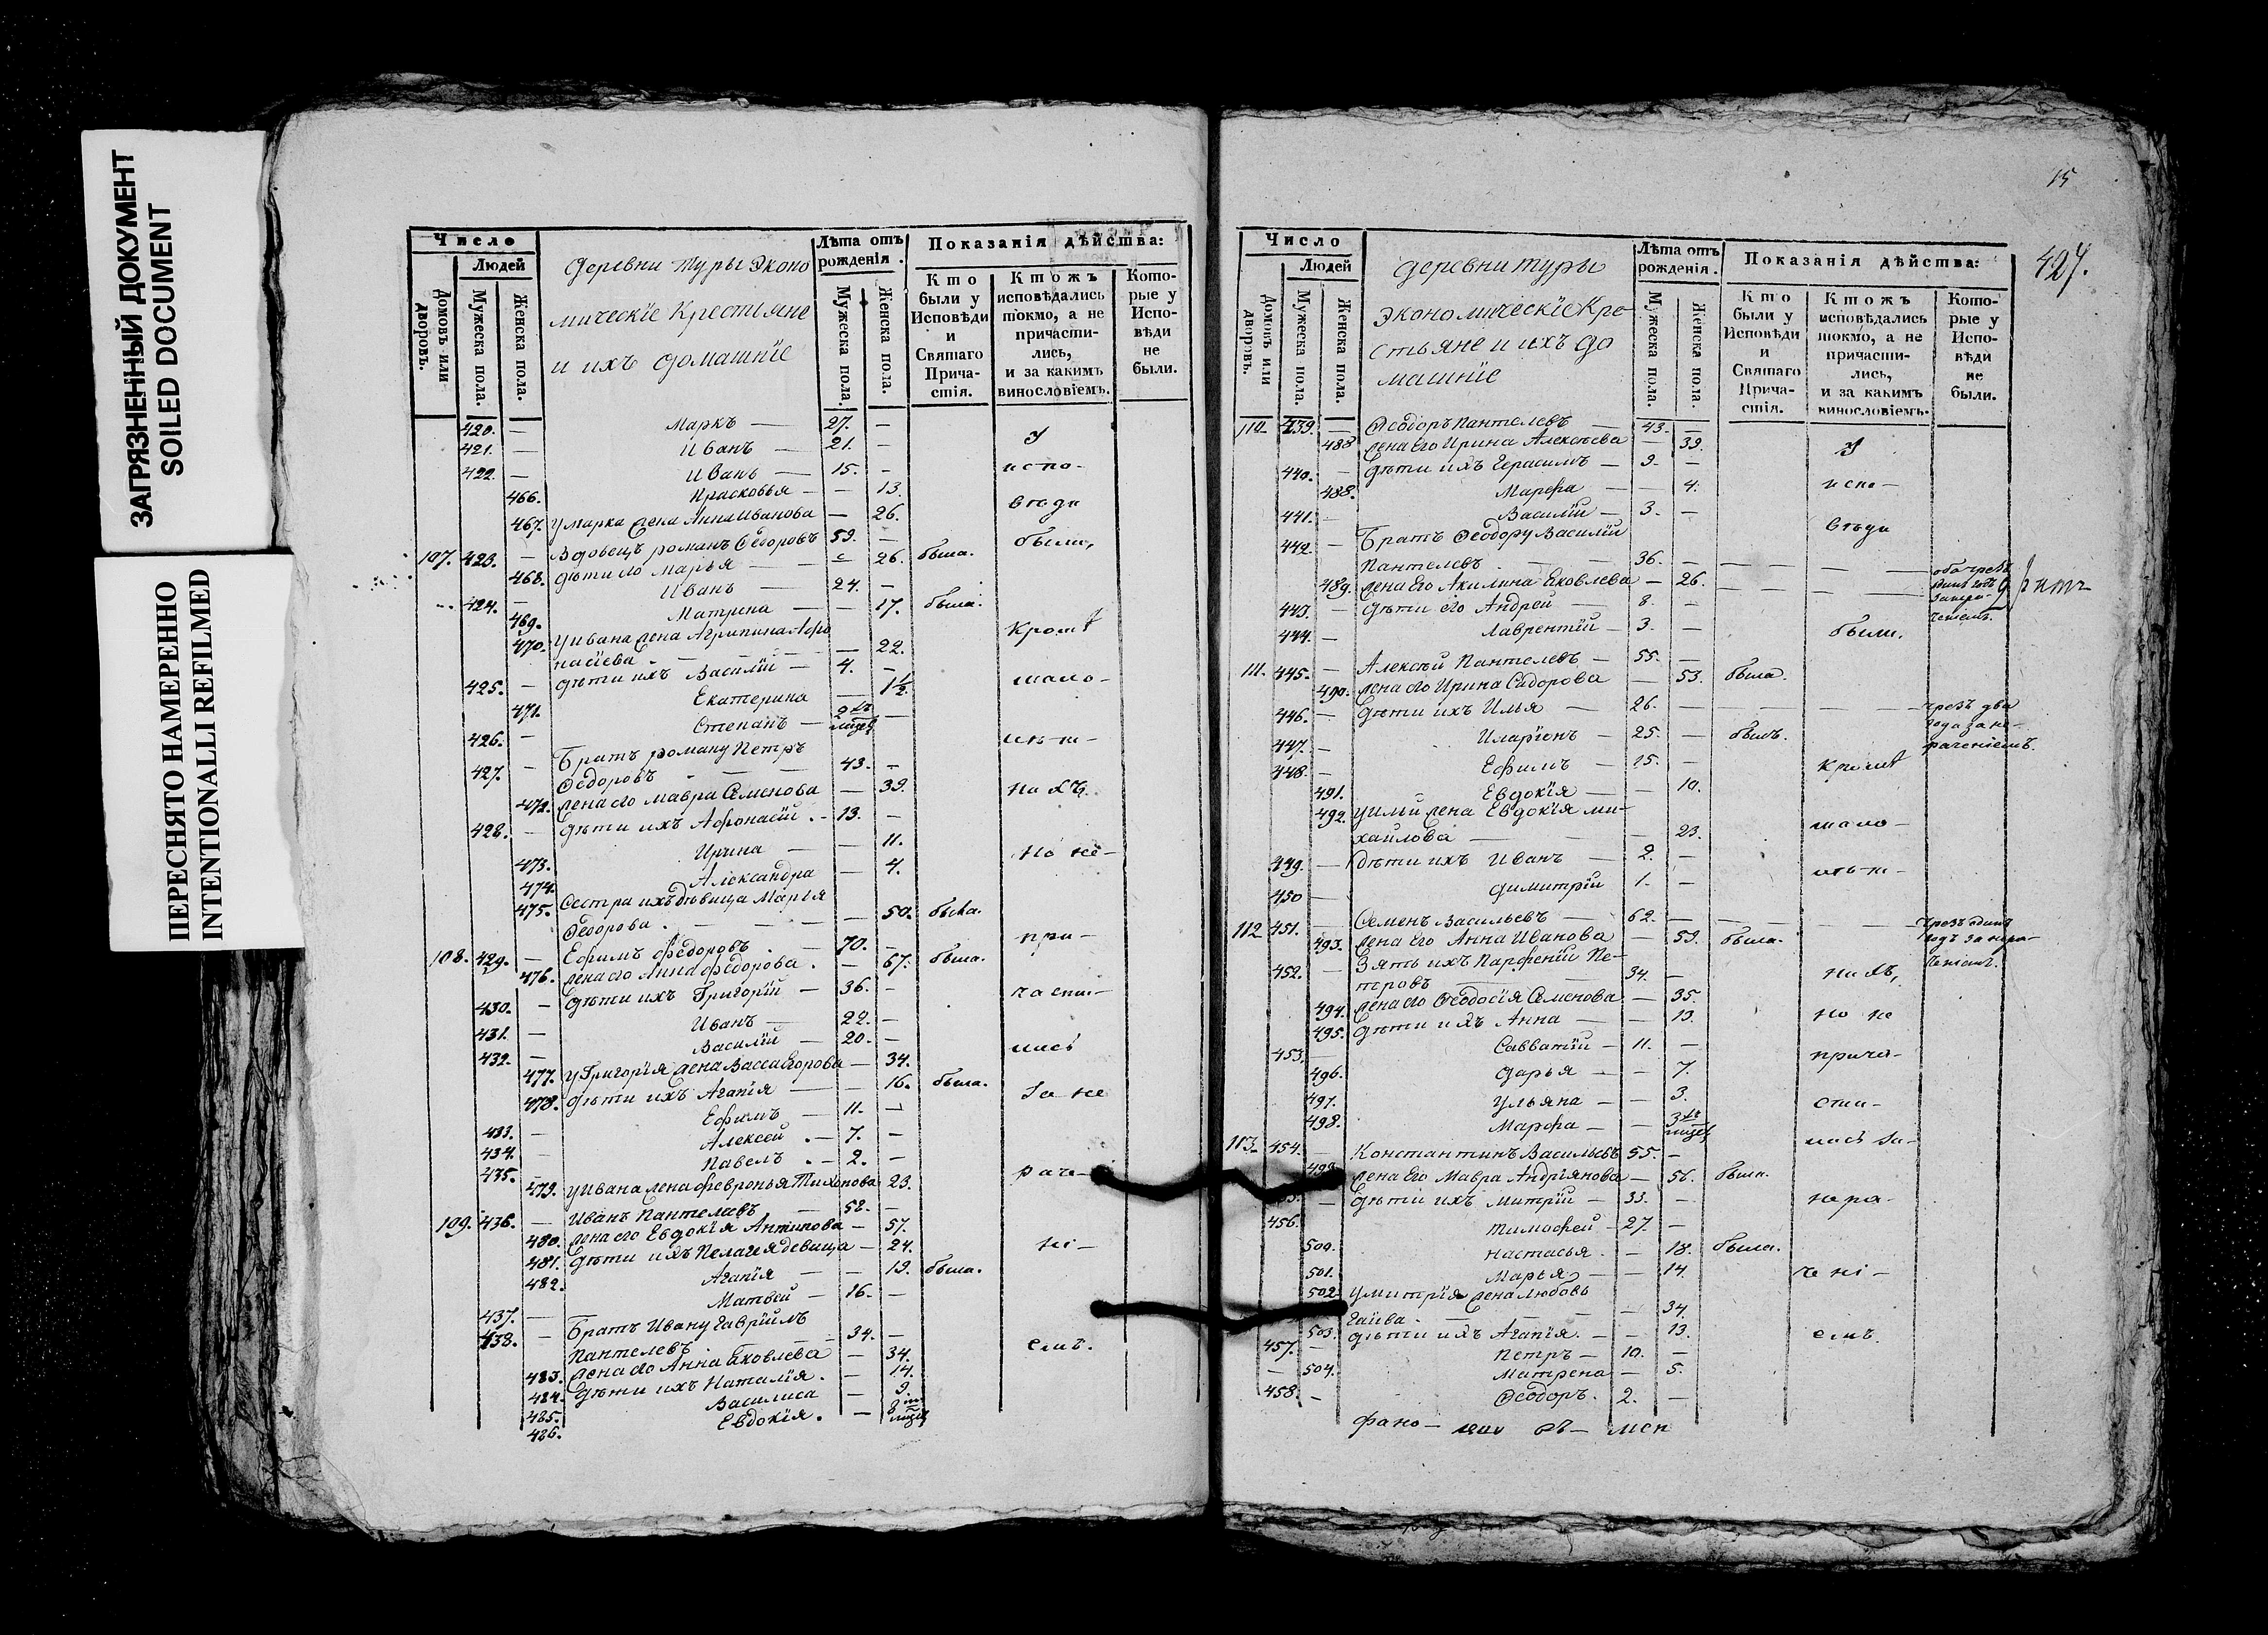 ЗАГРЯЗНЕННЫЙ ДОКУМЕНТ
SOILED DOCUMENT
ПЕРЕСНЯТО НАМЕРЕННО
INTENTIONALLI REFILMED
Число
Людей
Домовъ или дворовъ.
Мужеска пола.
Женска пола.
деревни туры Эконо
мическїе Крестьяне
и ихъ домашнїе
Лѣта отъ рожденія.
Мужеска пола.
Женска пола.
Показанія дѣйства:
Кто были у Исповѣди и Святаго Причастія.
Ктожъ исповѣдались токмо, а не причастились, и за какимъ винословіемъ.
Которые у Исповѣди не были.
420. — Маркъ — 27. —
421. — Иванъ — 21. — У
422. — Иванъ — 15. — испо-
466. Прасковья — — 13.
467. у Марка жена Анна Иванова — 26. вѣди
107. 423. — Вдовецъ романъ Ѳедоровъ 59. — были,
468. дѣти его Марья — — 26. была.
424. — Иванъ — 24. —
469. Матрена — — 17. была.
470. у ивана жена Агрипина Афо
насїева — — 22. Кромѣ
425. — дѣти ихъ Василїй — 4. —
471. Екатерина — 1½. мало-
426. — Степанъ —
427. — Братъ роману Петръ
Ѳедоровъ — 43. — лѣт-н-
472. жена его Мавра Семенова — 39. нихъ
428. — дѣти ихъ Афонасїй — 13. —
473. Ирина — — 11.
474. Александра — 4. но не-
475. Сестра ихъ дѣвица Марья
Ѳедорова. — — 50. была.
108. 429. — Ефимъ Ѳедоровъ. — 70. — при-
476. жена его Анна Ѳедорова. — 67. была.
430. — дѣти ихъ Григорїй — 36. — части-
431. — Иванъ — 22. —
432. — Василїй — 20. — лись
477. у Григорїя жена Васса Егорова — 34.
478. дѣти ихъ Агапїя — — 16. была.
433. — Ефимъ — 11. — За не
434. — Алексей — 7. —
435. — Павелъ — 2. —
479. у ивана жена Февронья Тихонова 23. раче-
109. 436. — Иванъ Пантелеевъ — 52. —
480. жена его Евдокїя Антипова — 57.
481. дѣти ихъ Пелагея девица — 24. нї-
482. Агапїя — — 19. была.
437. — Матвей — 16. —
438. — Братъ Ивану Гаврїилъ
Пантелевъ — 34. — емъ.
483. жена его Анна Яковлева — 34.
484. дѣти ихъ Наталїя. — 14.
485. Василиса — 9.
486. Евдокїя. —
15
427.
Число
Людей
Домовъ или дворовъ.
Мужеска пола.
Женска пола.
деревни туры
экономическїе Кре-
стьяне и ихъ до
машнїе
Лѣта отъ рожденія.
Мужеска пола.
Женска пола.
Показанія дѣйства:
Кто были у Исповѣди и Святаго Причастія.
Ктожъ исповѣдались токмо, а не причастились, и за какимъ винословіемъ.
Которые у Исповѣди не были.
110. 439. — Ѳеодоръ Пантелевъ — 43. —
488 жена Его Ирина Алексѣева — 39. У
440. — дѣти ихъ Герасимъ — 9. —
488. Марфа — — 4. испо-
441. — Василїй — 3. —
442. — Братъ Ѳеодору Василїй вѣди
Пантелевъ. — 36. —
489. жена Его Акилина Яковлева — 26. —
443. — дѣти его Андрей — 8. —
444. — Лаврентїй — 3. — были.
111. 445. — Алексѣй Пантелевъ — 55. —
490. жена его Ирина Сидорова — 53. была.
446. — дѣти ихъ Илья — 26. — чрезъ два
447. — Иларїонъ — 25. — былъ. года за не-
448. — Ефимъ — 15. — Кромѣ рачениемъ.
491. Евдокїя — — 10.
492. у ильи жена Евдокїя ми-
хайлова — — 23. мало-
449. — дѣти ихъ Иванъ — 2. —
450 — Димитрїй 1. — лѣт-н-
112 451. — Семенъ Васильевъ — 62. — чрезъ одинъ
493. жена Его Анна Иванова — 59. была. годъ за нера-
452. — Зять ихъ Парфенїй Пе- ченїемъ.
тровъ 34. — нихъ,
494. жена его Ѳеодосїя Семенова — 35.
495. дѣти ихъ Анна — — 13. но не
453. — Савватїй — 11. —
496. Дарья — — 7. прича-
497. Ульяна — — 3.
498. Марфа — — сти-
113. 454. — Константинъ Васильевъ 55. — лись за-
жена Его Мавра Андрїянова — 56. была.
— дѣти ихъ Митрїй — 33. — нера-
456. Тимофей — 27. —
500. Настасья. — 18. была.
501. Марья — — 14. ченї-
502 у митрїя жена Любовь
— — 34.
503. дѣти ихъ Агапїя. — — 13. емъ.
457. — Петръ — 10. —
— 504. Матрена — 5.
458. — Ѳеодоръ. 2. —